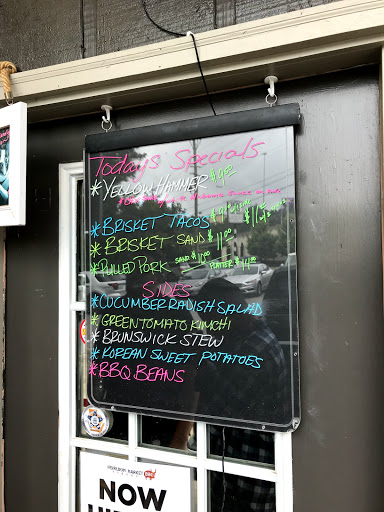 Todays Specials
*YELLOW HAMMER $9.52
*BRISKET TACOS
*BRISKET SAND $11.00
*PULLED PORK SAND $10.00 PLATTER $14.00
SIDES
*CUCUMBER RAVISH SALAD
*GREEN TOMATO KIMCHI
*BRUNSWICK STEW
*KOREAN SWEET POTATOES
*BBQ BEANS
NOW